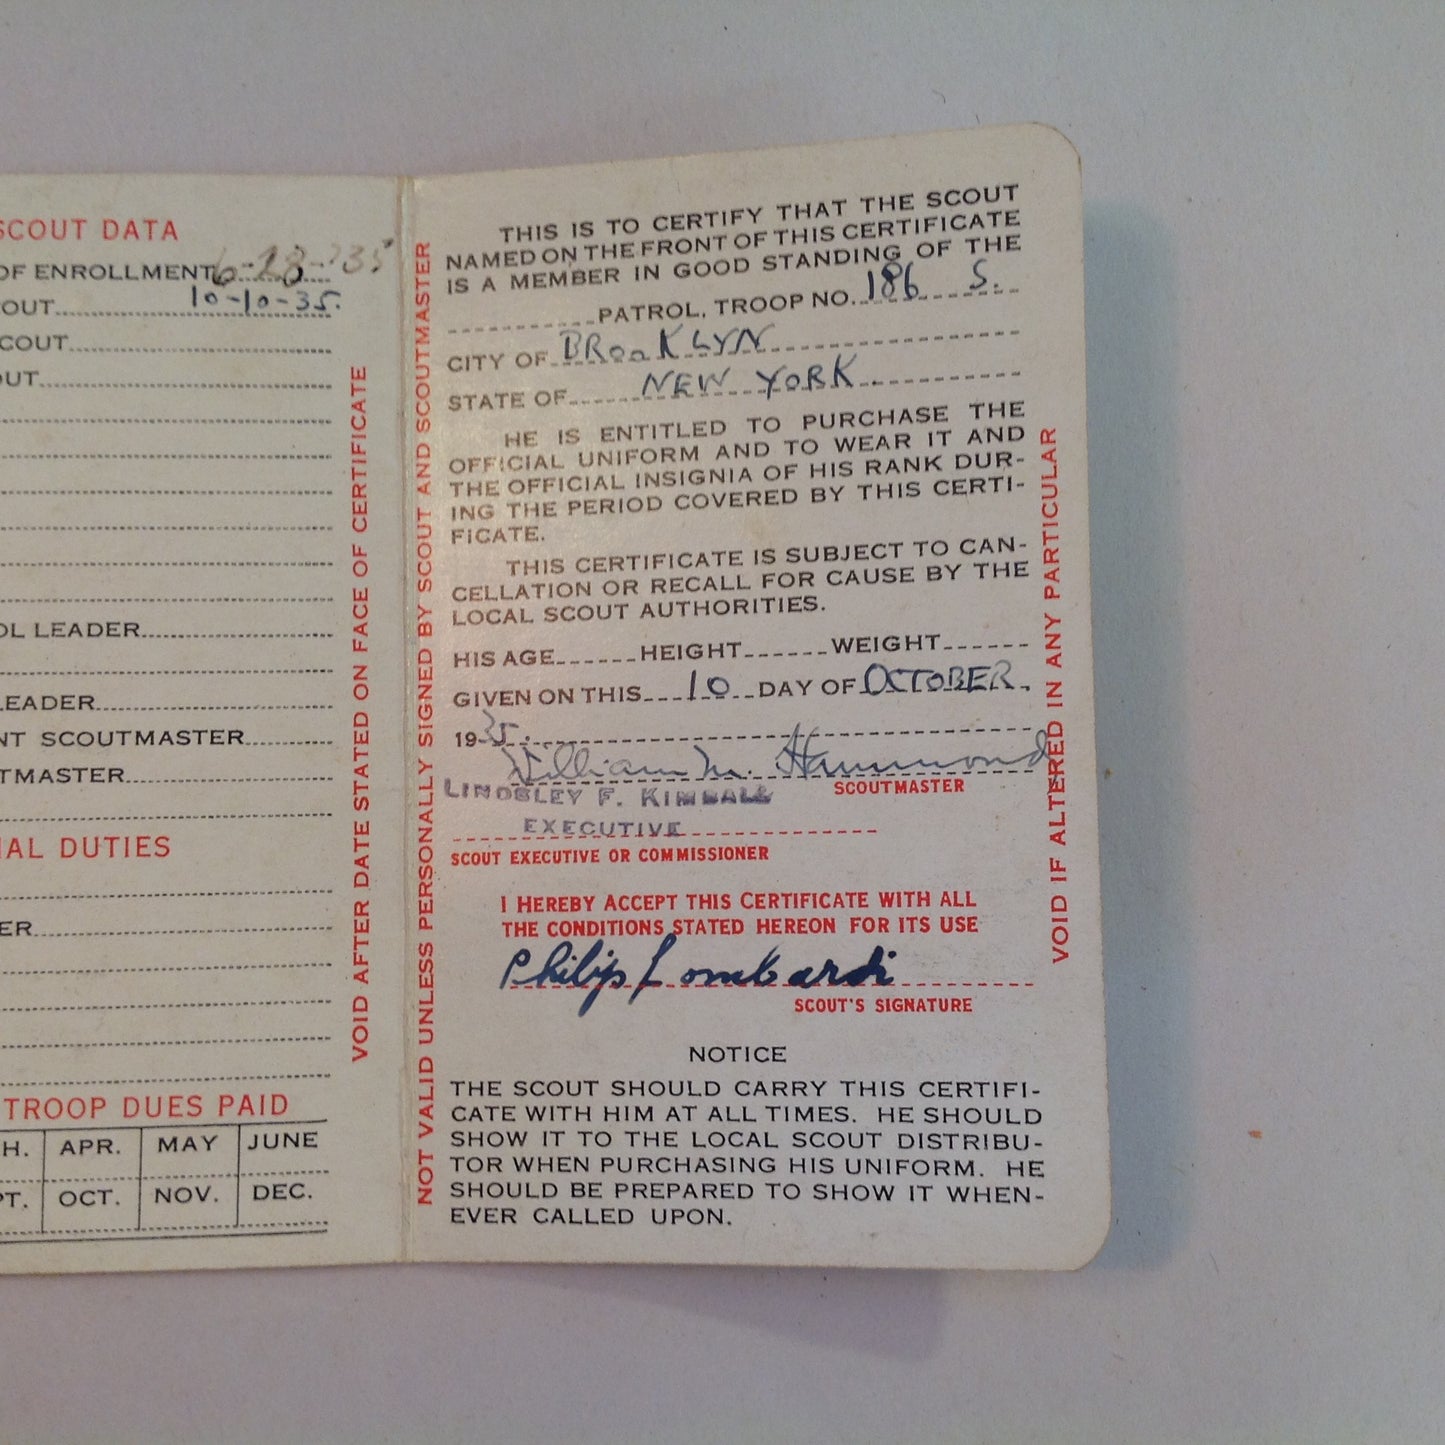 SCOUT DATA
OF ENROLLMENT 6-28-'35
OUT 10-10-35.
COUT
OUT
OL LEADER
LEADER
NT SCOUTMASTER
TMASTER
IAL DUTIES
ER
TROOP DUES PAID
H. APR. MAY JUNE
PT. OCT. NOV. DEC.
VOID AFTER DATE STATED ON FACE OF CERTIFICATE
NOT VALID UNLESS PERSONALLY SIGNED BY SCOUT AND SCOUTMASTER
THIS IS TO CERTIFY THAT THE SCOUT
NAMED ON THE FRONT OF THIS CERTIFICATE
IS A MEMBER IN GOOD STANDING OF THE
PATROL, TROOP NO. 186 S.
CITY OF BROOKLYN
STATE OF NEW YORK.
HE IS ENTITLED TO PURCHASE THE
OFFICIAL UNIFORM AND TO WEAR IT AND
THE OFFICIAL INSIGNIA OF HIS RANK DUR-
ING THE PERIOD COVERED BY THIS CERTI-
FICATE.
THIS CERTIFICATE IS SUBJECT TO CAN-
CELLATION OR RECALL FOR CAUSE BY THE
LOCAL SCOUT AUTHORITIES.
HIS AGE HEIGHT WEIGHT
GIVEN ON THIS 10 DAY OF OCTOBER.
1935.
William M. Hammond
SCOUTMASTER
LINDSLEY F. KIMBALL
EXECUTIVE
SCOUT EXECUTIVE OR COMMISSIONER
I HEREBY ACCEPT THIS CERTIFICATE WITH ALL
THE CONDITIONS STATED HEREON FOR ITS USE
Philip Lombardi
SCOUT'S SIGNATURE
NOTICE
THE SCOUT SHOULD CARRY THIS CERTIFI-
CATE WITH HIM AT ALL TIMES. HE SHOULD
SHOW IT TO THE LOCAL SCOUT DISTRIBU-
TOR WHEN PURCHASING HIS UNIFORM. HE
SHOULD BE PREPARED TO SHOW IT WHEN-
EVER CALLED UPON.
VOID IF ALTERED IN ANY PARTICULAR